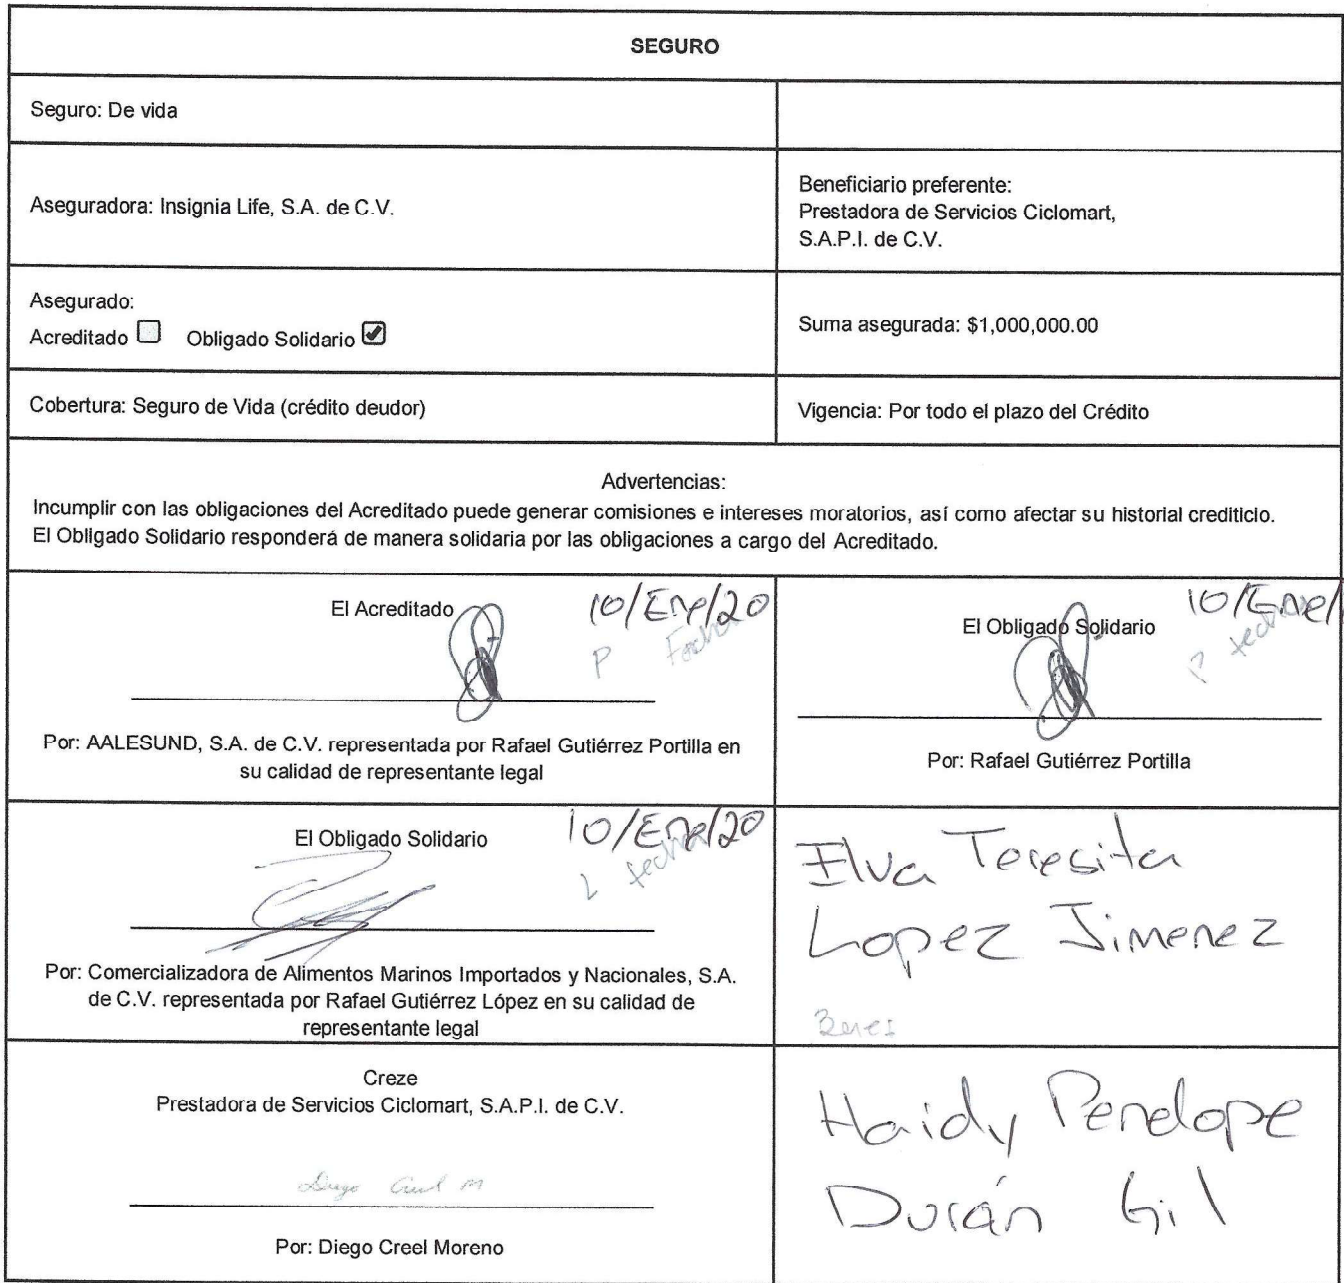 SEGURO
Seguro: De vida
Aseguradora: Insignia Life, S.A. de C.V.
Beneficiario preferente:
Prestadora de Servicios Ciclomart,
S.A.P.I. de C.V.
Asegurado:
Acreditado Obligado Solidario
Suma asegurada: $1,000,000.00
Cobertura: Seguro de Vida (crédito deudor)
Vigencia: Por todo el plazo del Crédito
Advertencias:
Incumplir con las obligaciones del Acreditado puede generar comisiones e intereses moratorios, así como afectar su historial crediticio.
El Obligado Solidario responderá de manera solidaria por las obligaciones a cargo del Acreditado.
El Acreditado 10/Ene/20
P Fecha
Por: AALESUND, S.A. de C.V. representada por Rafael Gutiérrez Portilla en
su calidad de representante legal
El Obligado Solidario 10/Ene/
fecha
Por: Rafael Gutiérrez Portilla
El Obligado Solidario 10/Ene/20
fecha
Por: Comercializadora de Alimentos Marinos Importados y Nacionales, S.A.
de C.V. representada por Rafael Gutiérrez López en su calidad de
representante legal
Elva Teresita
Lopez Jimenez
Creze
Prestadora de Servicios Ciclomart, S.A.P.I. de C.V.
Diego Creel M
Por: Diego Creel Moreno
Haidy Penelope
Durán Gil